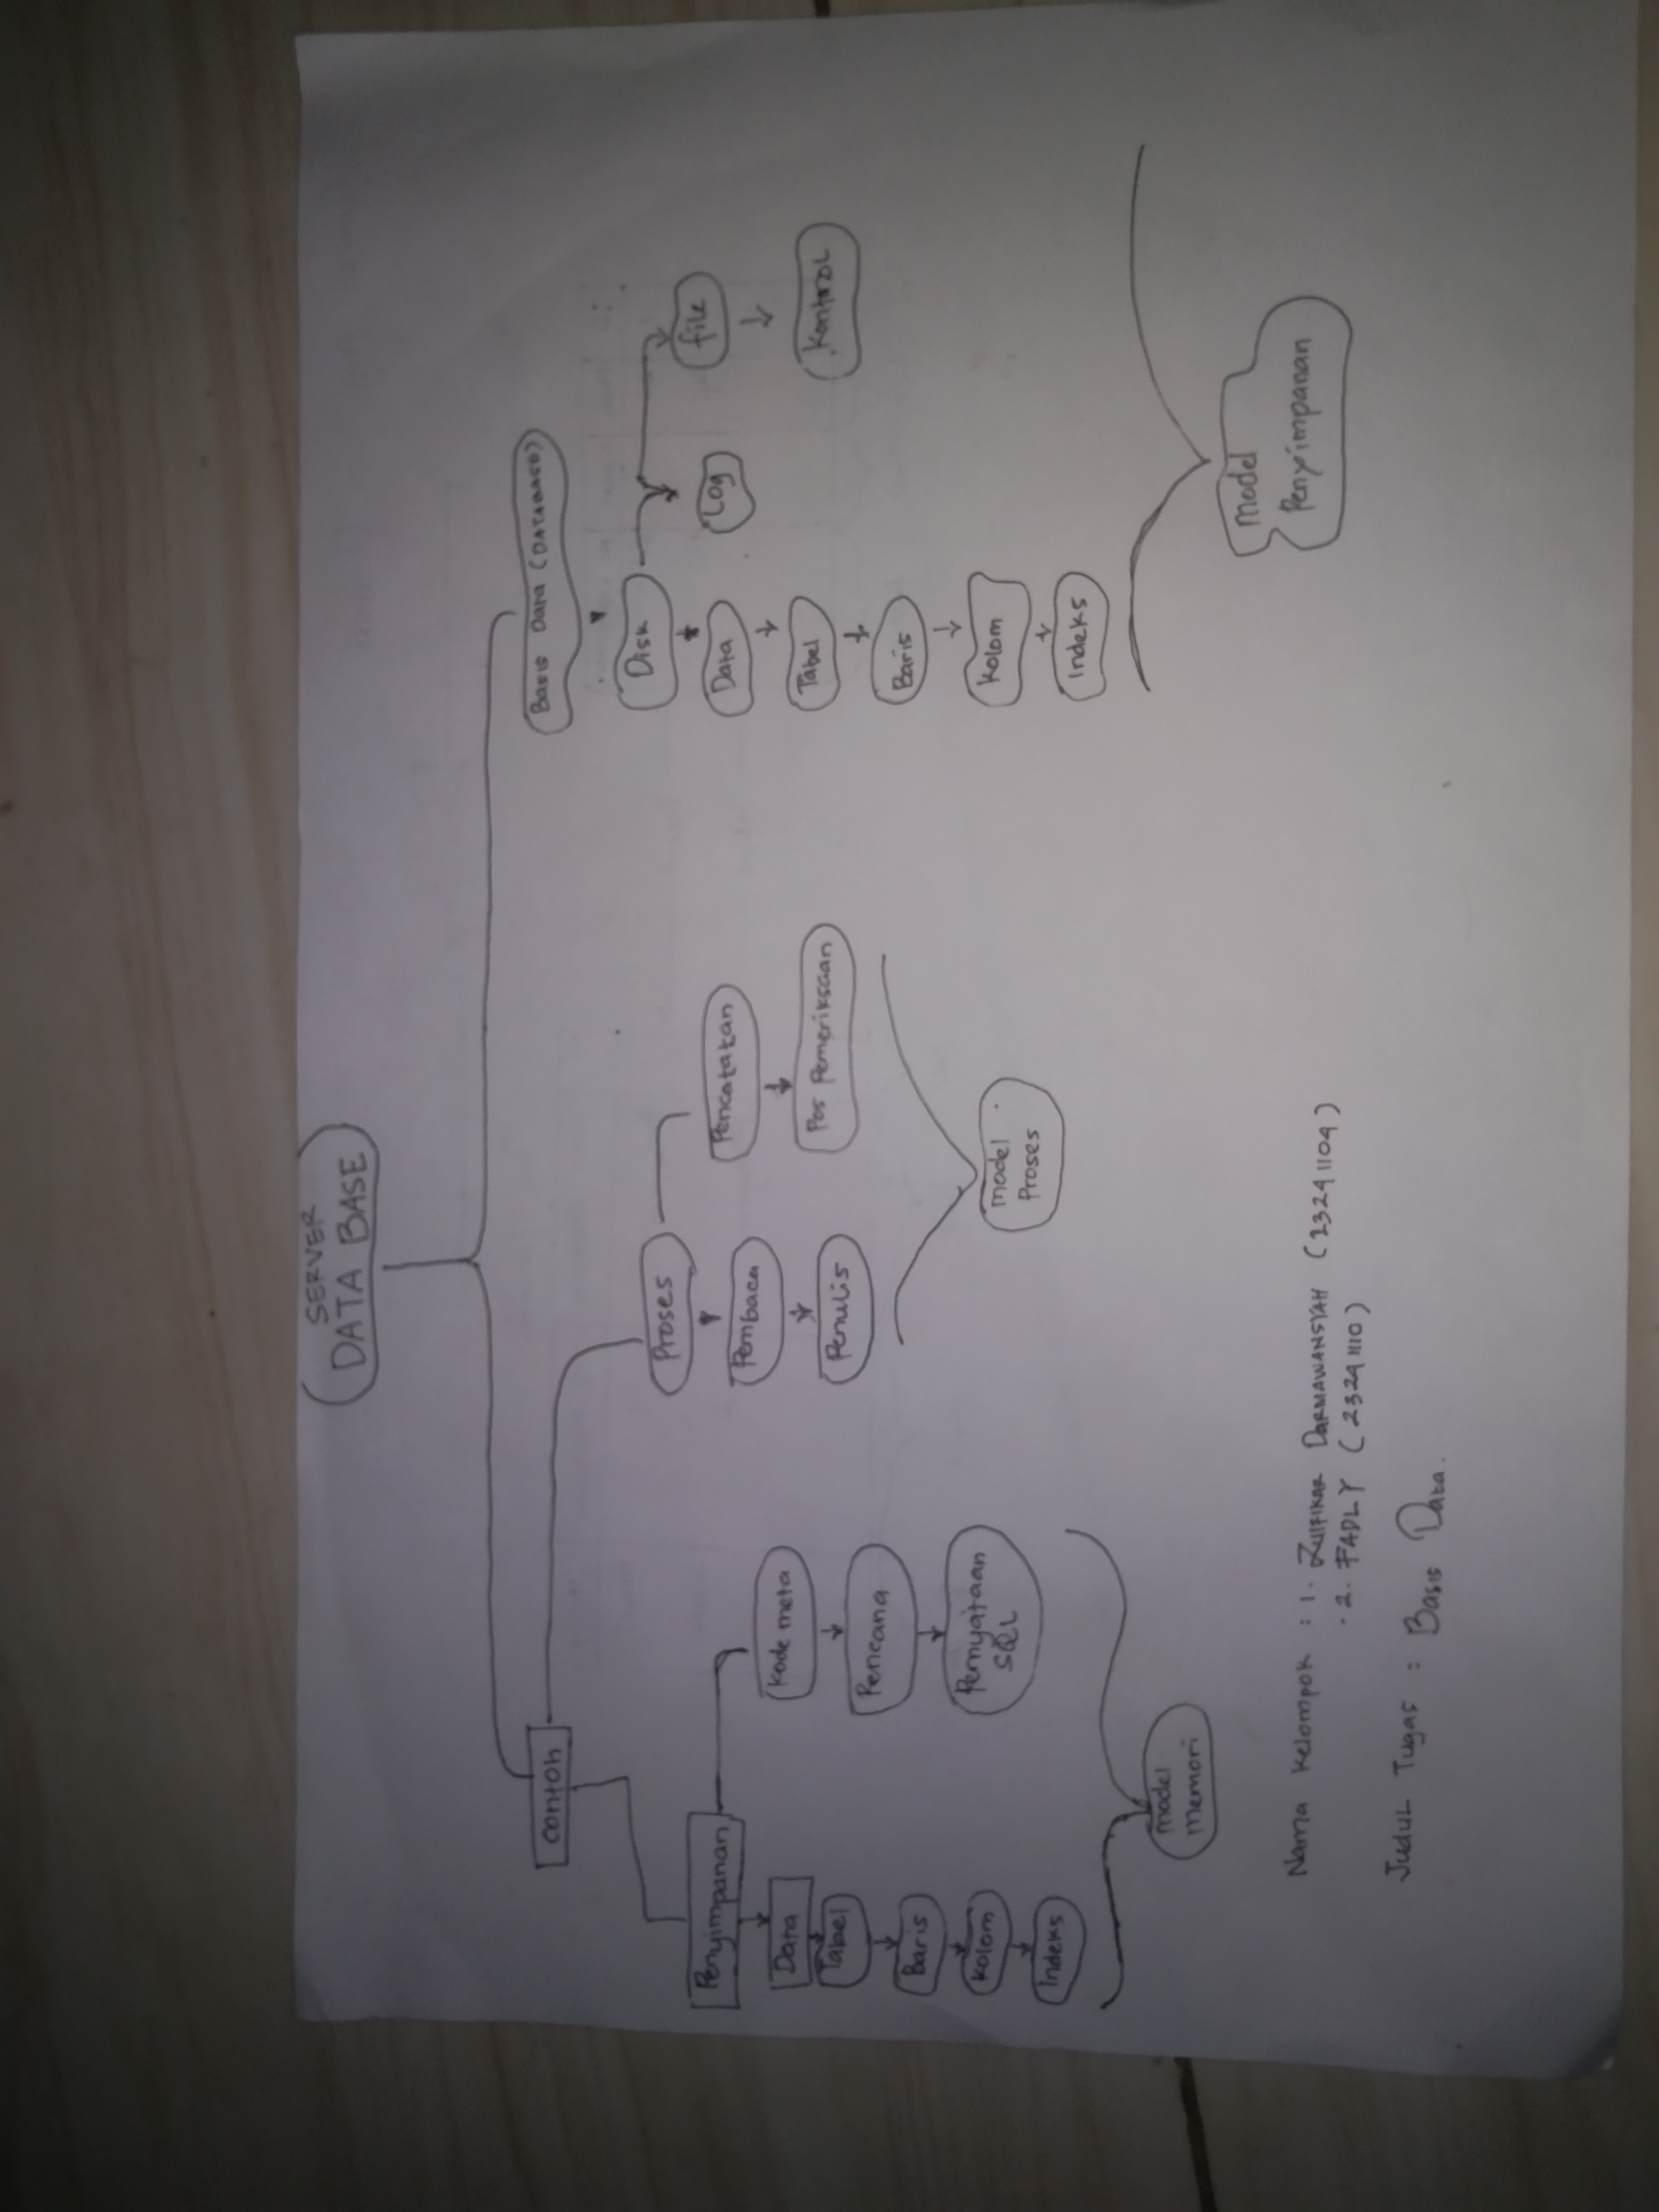 SERVER
DATA BASE
contoh
Basis Data (DATABASE)
Penyimpanan
Data
Tabel
Baris
Kolom
Indeks
Kode meta
Pencana
Pernyataan
SQL
model
memori
Proses
Pembaca
Penulis
Pencatatan
Pos Pemeriksaan
model
Proses
Disk
Log
file
Kontrol
Data
Tabel
Baris
Kolom
Indeks
model
Penyimpanan
Nama Kelompok : 1. ZULFIKAR DARMAWANSYAH (23241104)
2. FADLY (23241110)
Judul Tugas : Basis Data.